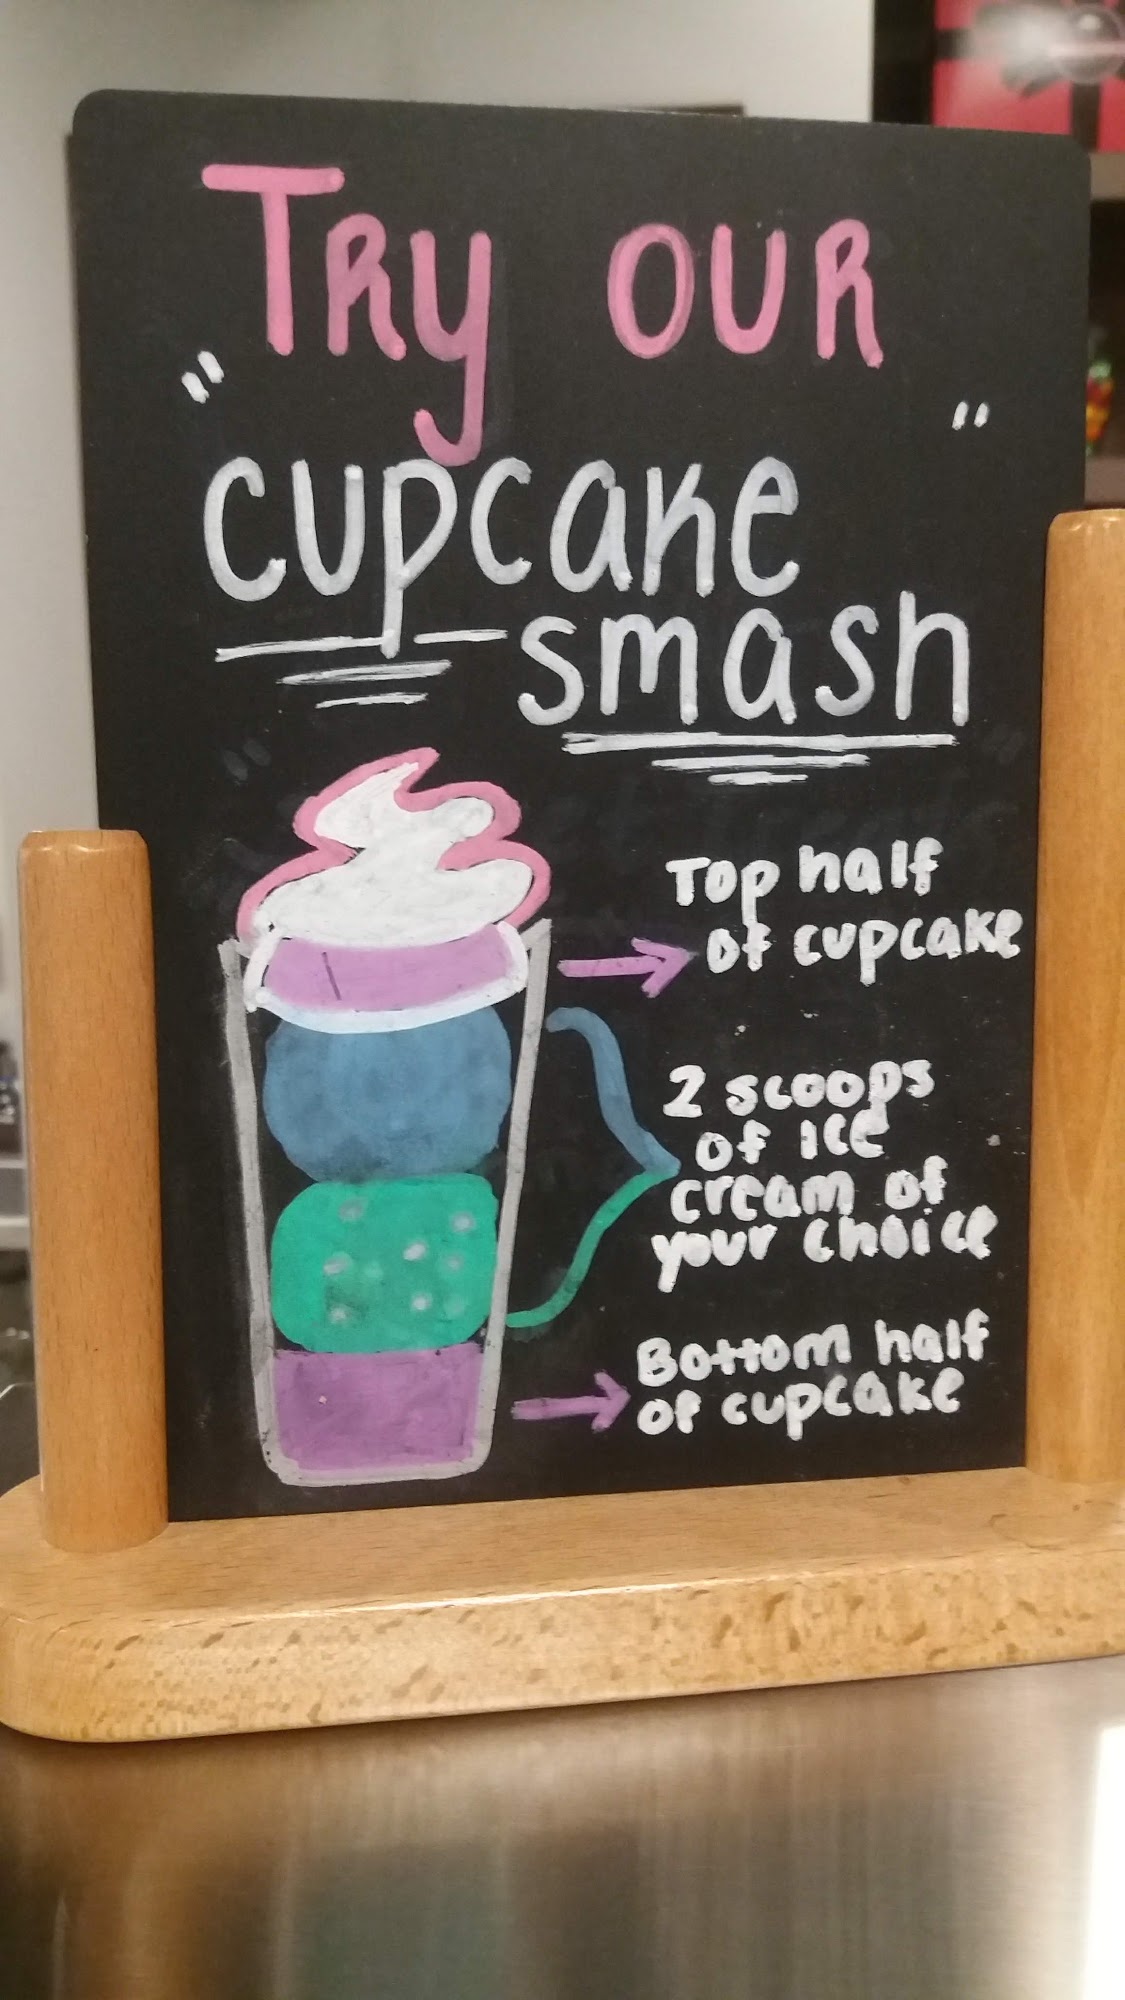 Try our
"cupcake
smash"
Top half
of cupcake
2 scoops
of ice
cream of
your choice
Bottom half
of cupcake